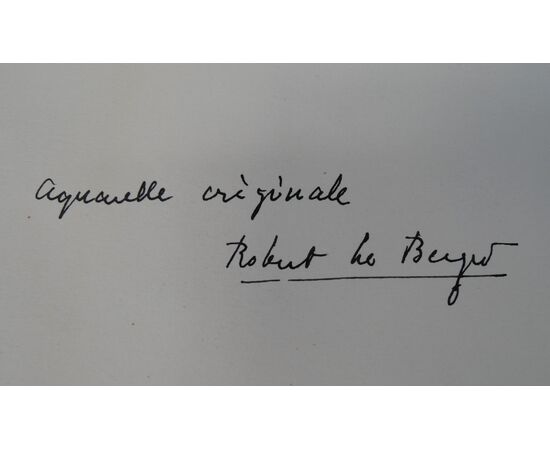 Aquarelle originale
Robert Le Berger